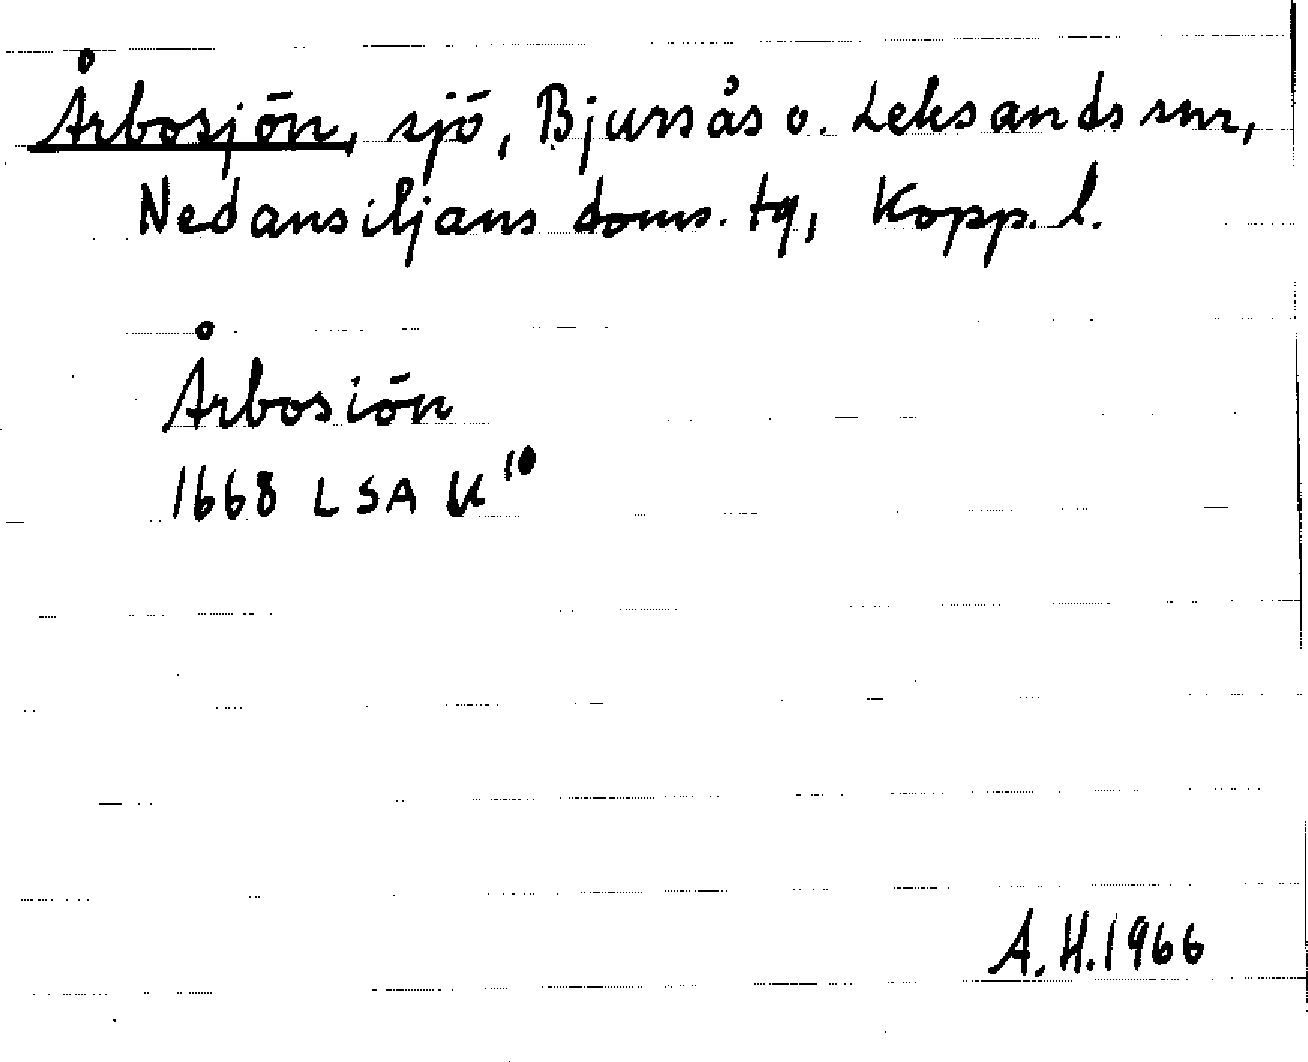 Årbosjön, sjö, Bjursås o. Leksands snr,
Nedansiljans doms. tg, Kopp. l.
Årbosiön
1668 LSA K¹⁰
A. H. 1966